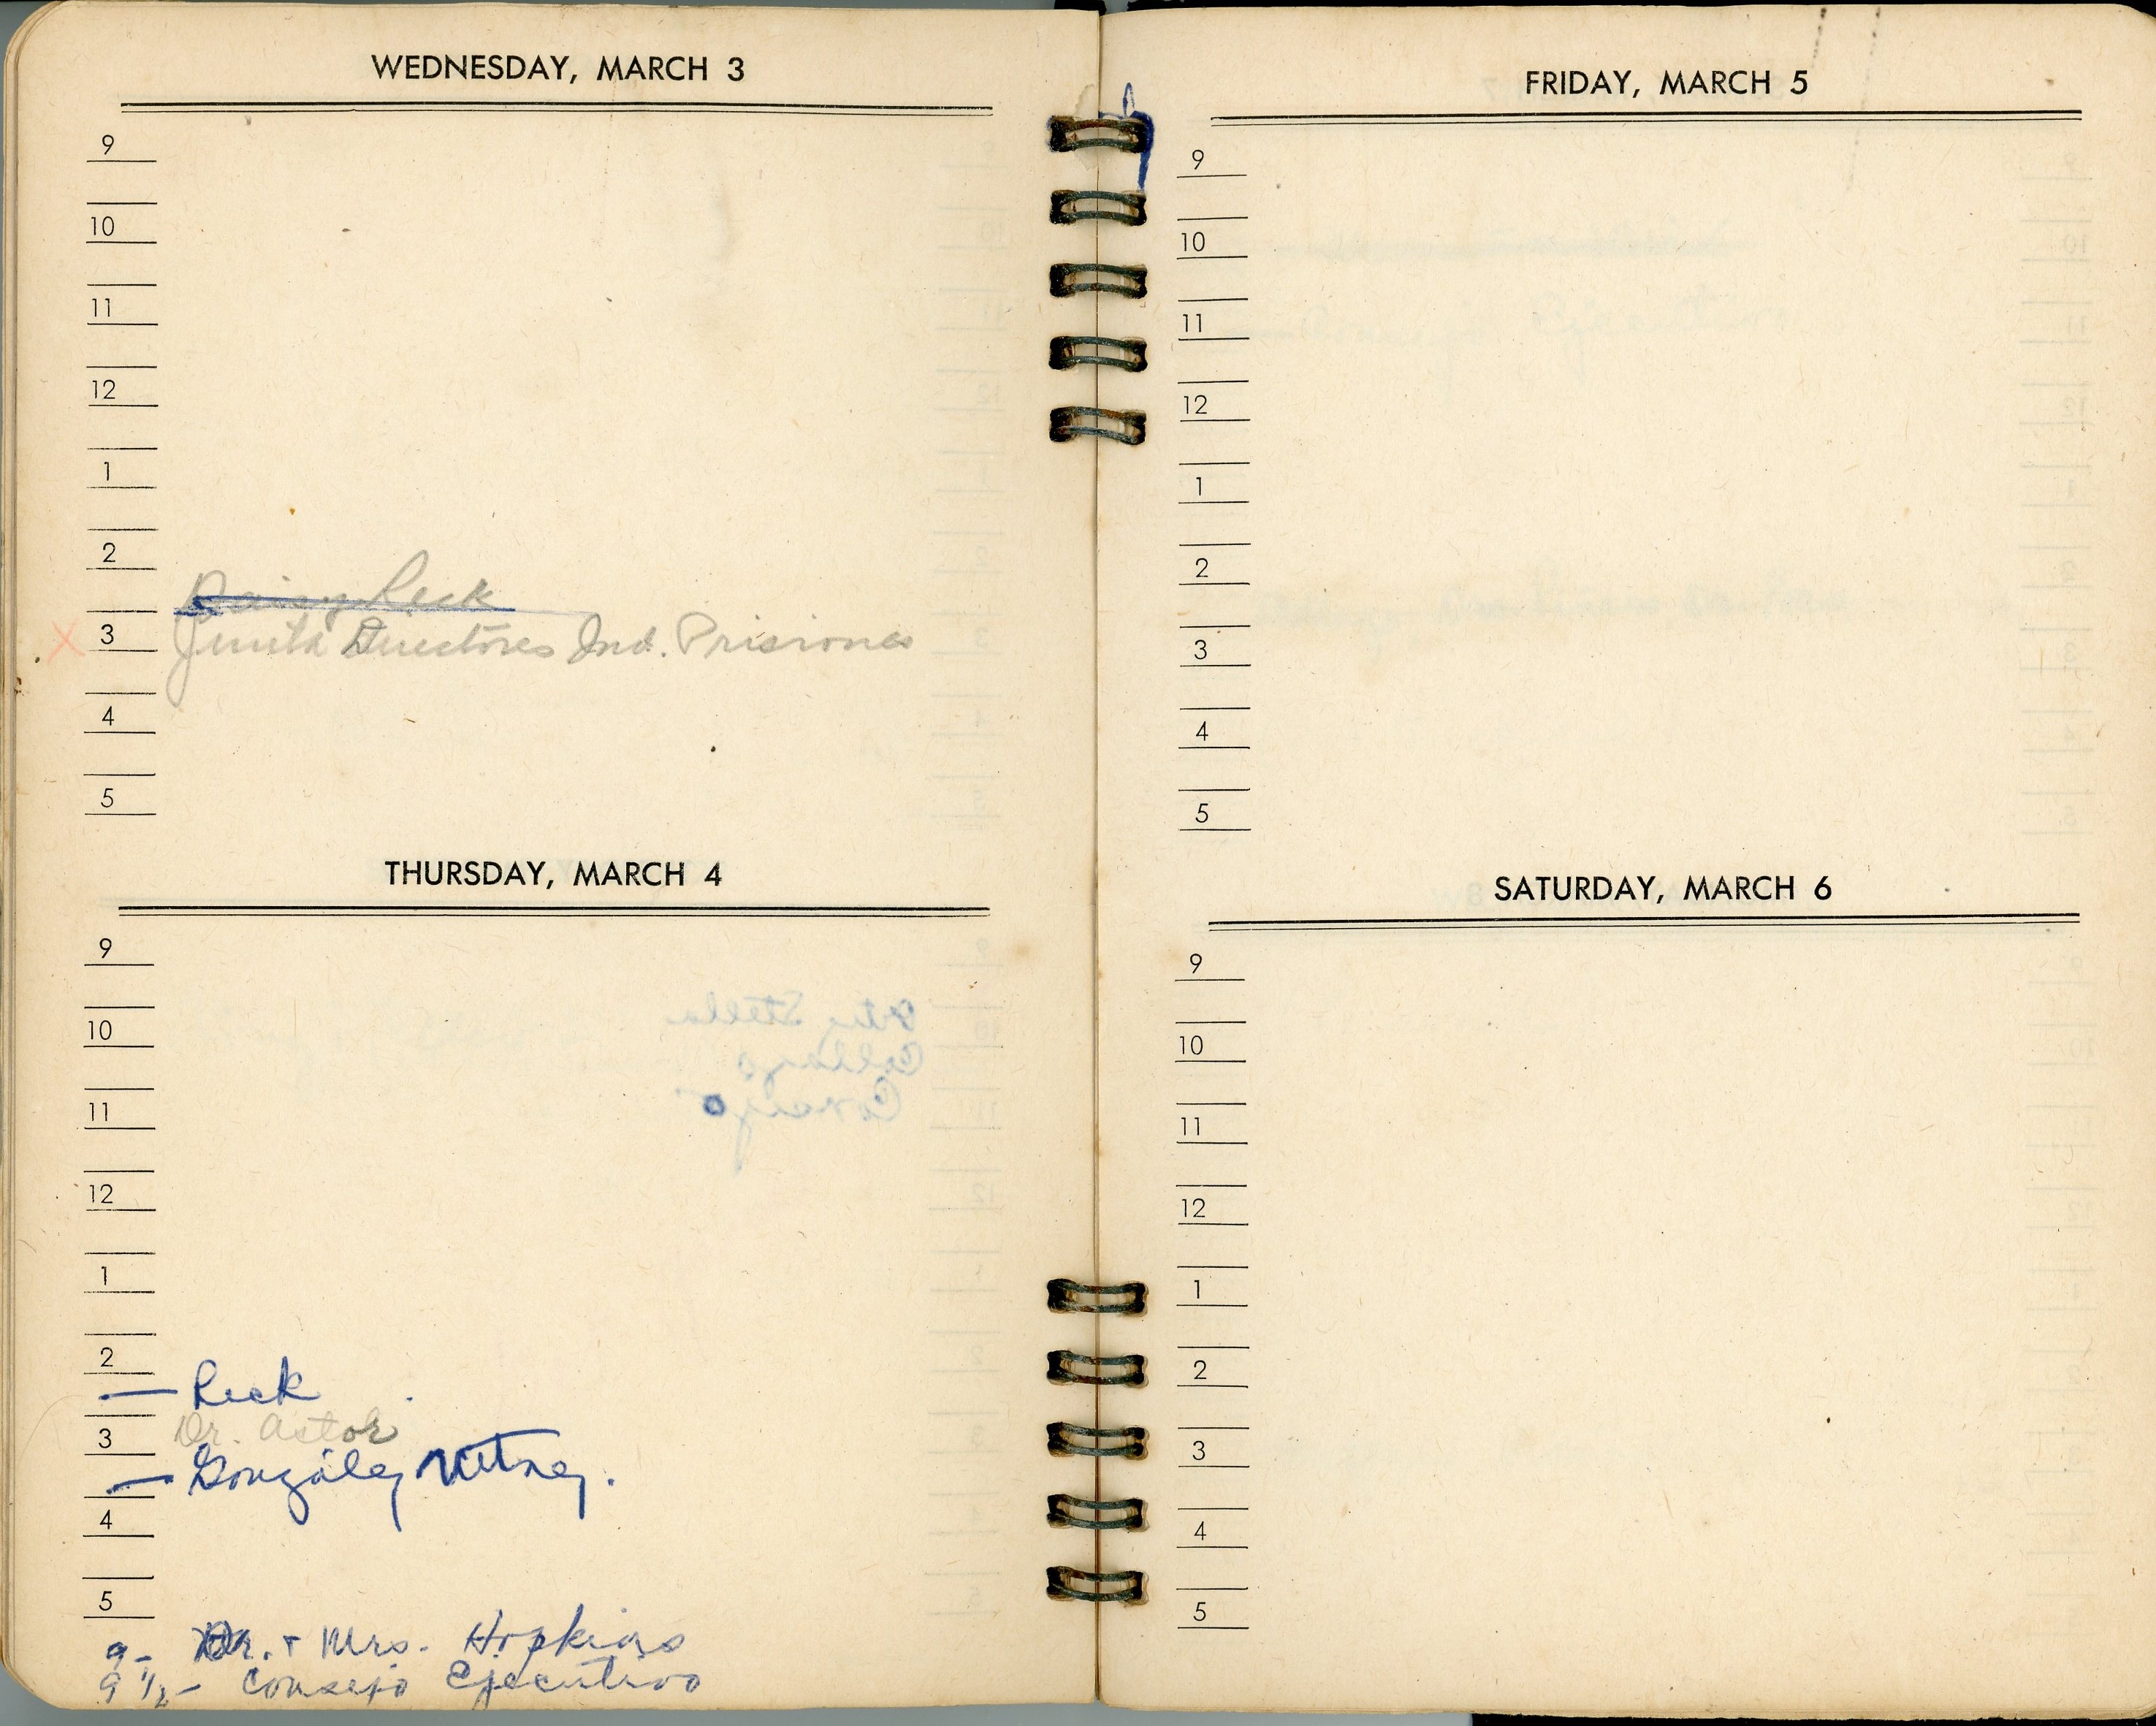 WEDNESDAY, MARCH 3
9
10
11
12
1
2
Daisy Reck
3 Junta Directores Ind. Prisiones
4
5
THURSDAY, MARCH 4
9
10
11
12
1
2
— Reck
Dr. Astor
3
— González
4
5
9- Dr. + Mrs. Hopkins
9 1/2- Consejo Ejecutivo
FRIDAY, MARCH 5
9
10
11
12
1
2
3
4
5
SATURDAY, MARCH 6
9
10
11
12
1
2
3
4
5